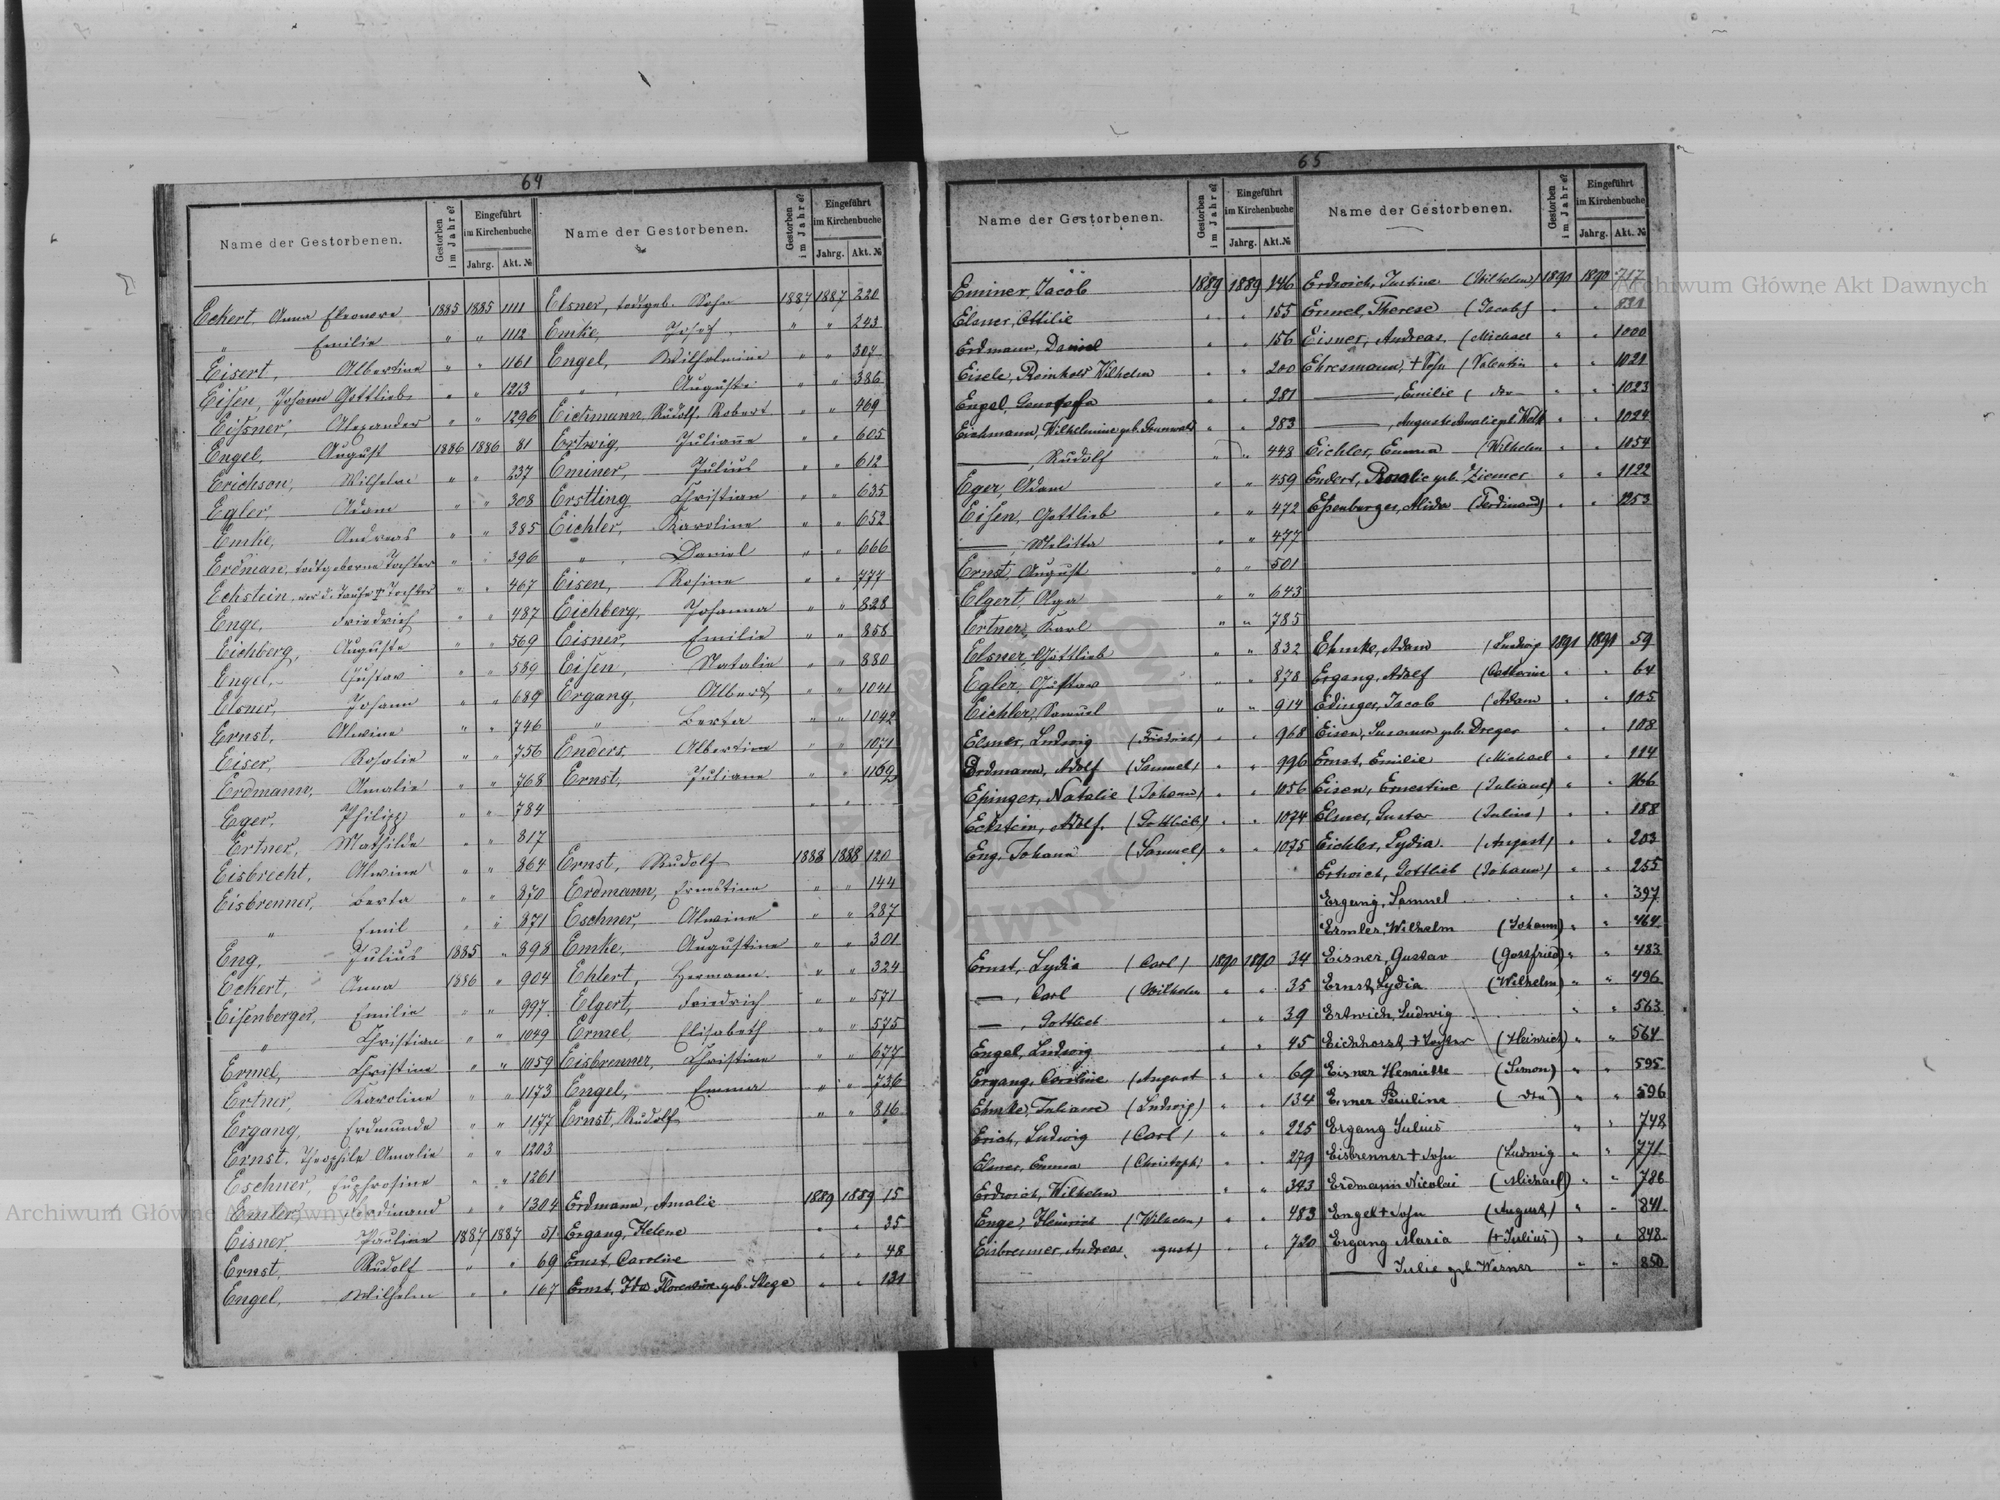 64
Name der Gestorbenen.
Gestorben im Jahre?
Eingeführt im Kirchenbuche
Jahrg.
Akt. №
Eckert, Anna Eleonore 1885 1885 1111
" Emilie " " 1112
Eisert, Albertine " " 1161
Eisen, Johann Gottlieb " " 1213
Eissner, Alexander " " 1296
Engel, August 1886 1886 81
Erichson, Wilhelm " " 237
Egler, Adam " " 308
Emke, Andreas " " 385
Erdman, todtgeborne Tochter " " 396
Eckstein, vor d. Taufe † Tochter " " 467
Enge, Friedrich " " 487
Eichberg, Auguste " " 569
Engel, Gustav " " 589
Elsner, Johann " " 689
Ernst, Alwine " " 746
Eiser, Rosalie " " 756
Erdmann, Amalie " " 768
Eger, Philipp " " 784
Ertner, Mathilde " " 817
Eisbrecht, Alwine " " 864
Eisbrenner, Berta " " 870
" Emil " " 871
Eng, Julius 1885 " 898
Eckert, Anna 1886 " 904
Eisenberger, Emilie " " 997
" Christian " " 1049
Ermel, Christine " " 1059
Ertner, Karoline " " 1173
Ergang, Erdmunde " " 1177
Ernst, Theophile Amalie " " 1203
Eschner, Euphrosine " " 1261
Emler, Ferdinand " " 1304
Eisner, Pauline 1887 1887 51
Ernst, Rudolf " " 69
Engel, Wilhelm " " 167
Name der Gestorbenen.
Gestorben im Jahre?
Eingeführt im Kirchenbuche
Jahrg.
Akt. №
Elsner, todtgeb. Sohn 1887 1887 220
Emke, Josef " " 243
Engel, Wilhelmine " " 307
" Auguste " " 386
Eickmann, Rudolf Robert " " 469
Ertwig, Julianne " " 605
Eminer, Julius " " 612
Erstling Christian " " 635
Eichler, Karoline " " 652
" Daniel " " 666
Eisen, Rosine " " 777
Eichberg, Johanna " " 828
Eisner, Emilie " " 858
Eisen, Natalie " " 880
Ergang, Albert " " 1041
" Berta " " 1042
Enders, Albertine " " 1071
Ernst, Juliane " " 1109
Ernst, Rudolf 1888 1888 120
Erdmann, Ernestine " " 144
Eschner, Alwine " " 287
Emke, Augustine " " 301
Ehlert, Hermann " " 324
Elgert, Friedrich " " 571
Ermel, Elisabeth " " 575
Eisbrenner, Christine " " 677
Engel, Emma " " 736
Ernst, Rudolf " " 816
Erdmann, Amalie 1889 1889 15
Ergang, Helene " " 35
Ernst, Caroline " " 48
Ernst, Ida Florentine geb. Stege " " 131
65
Name der Gestorbenen.
Gestorben im Jahre?
Eingeführt im Kirchenbuche
Jahrg.
Akt. №
Eminer, Jacob 1889 1889 146
Elsner, Ottilie " " 155
Erdmann, Daniel " " 156
Eisele, Reinhold Wilhelm " " 200
Engel, " " 281
Eichmann, Wilhelmine geb. Grunwald " " 283
—, Rudolf " " 448
Eger, Adam " " 459
Eisen, Gottlieb " " 472
—, Melitta " " 477
Ernst, August " " 501
Elgert, Olga " " 643
Ertner, Karl " " 785
Elsner, Gottlieb " " 832
Egler, Gustav " " 878
Eichler, Samuel " " 914
Elsner, Ludwig (Friedrich) " " 968
Erdmann, Adolf (Samuel) " " 996
Epinger, Natalie (Johann) " " 1056
Eckstein, Adolf. (Gottlieb) " " 1074
Eng, Johann (Samuel) " " 1075
Ernst, Lydia (Carl) 1890 1890 34
—, Carl (Wilhelm " " 35
—, Gottlieb " " 39
Engel, Ludwig " " 45
Ergang, Caroline (August " " 69
Ehmke, Juliane (Ludwig) " " 134
Erich, Ludwig (Carl) " " 225
Elsner, Emma (Christoph) " " 279
Erdwich, Wilhelm " " 343
Enge, Heinrich (Wilhelm) " " 483
Eisbrenner, Andreas gust) " " 720
Name der Gestorbenen.
Gestorben im Jahre?
Eingeführt im Kirchenbuche
Jahrg.
Akt. №
Erdwich, Justine (Wilhelm) 1890 1890 717
Ermel, Therese (Jacob) " " 821
Eisner, Andreas. (Michael " " 1000
Ehresmann, † Sohn (Valentin " " 1021
—, Emilie ( dto " " 1023
—, Auguste Amalie geb. Wolf " " 1024
Eichler, Emma (Wilhelm " " 1054
Endert, Rosalie geb. Ziemer " " 1122
Essenburger, Alida (Ferdinand) " " 1253
Ehmke, Adam (Ludwig 1891 1891 59
Ergang, Adolf (Catharine " " 64
Edinger, Jacob (Adam " " 105
Eisen, Susanna geb. Dreger " " 108
Ernst, Emilie (Michael " " 114
Eisen, Ernestine (Juliane) " " 166
Elsner, Gustav (Julius) " " 188
Eichler, Lydia. (August) " " 203
Ertwich, Gottlieb (Johann) " " 255
Ergang, Samuel " " 397
Ermler, Wilhelm (Johann) " " 464
Eisner, Gustav (Gottfried) " " 483
Ernst, Lydia (Wilhelm) " " 496
Ertwich, Ludwig " " 563
Eichhorst, † Tochter (Heinrich) " " 564
Eisner Henriette (Simon) " " 595
Erner Pauline ( dto ) " " 596
Ergang Julius " " 748
Eisbrenner † Sohn (Ludwig " " 771
Erdmann Nicolai (Michael) " " 786
Engel † Sohn (August) " " 841
Ergang Maria († Julius) " " 848
— Julie geb. Werner " " 850
Archiwum Główne Akt Dawnych
Archiwum Główne Akt Dawnych